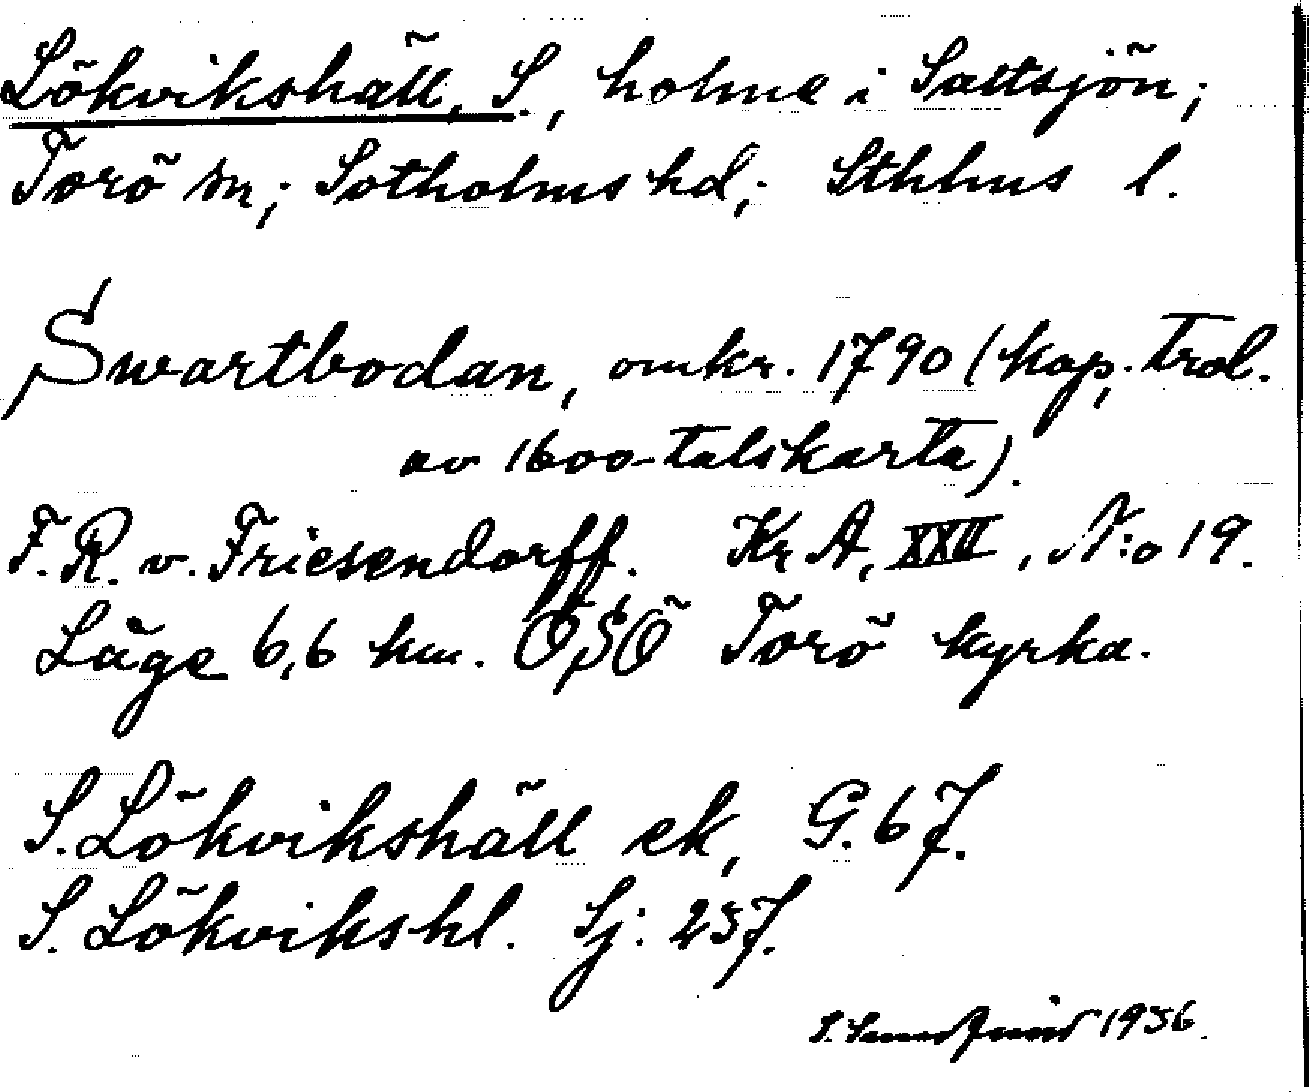 Lökvikshäll, S., holme i Saltsjön;
Torö sn; Sotholms hd; Sthlms l.
Swartbodan, omkr. 1790 (kop. trol.
av 1600-talskarta).
F.R. v. Friesendorff. Kr A, XXII, N:o 19.
Läge 6,6 km. OSO Torö kyrka.
S. Lökvikshäll ek, G. 67.
S. Lökvikshl. Sj: 257.
1936.